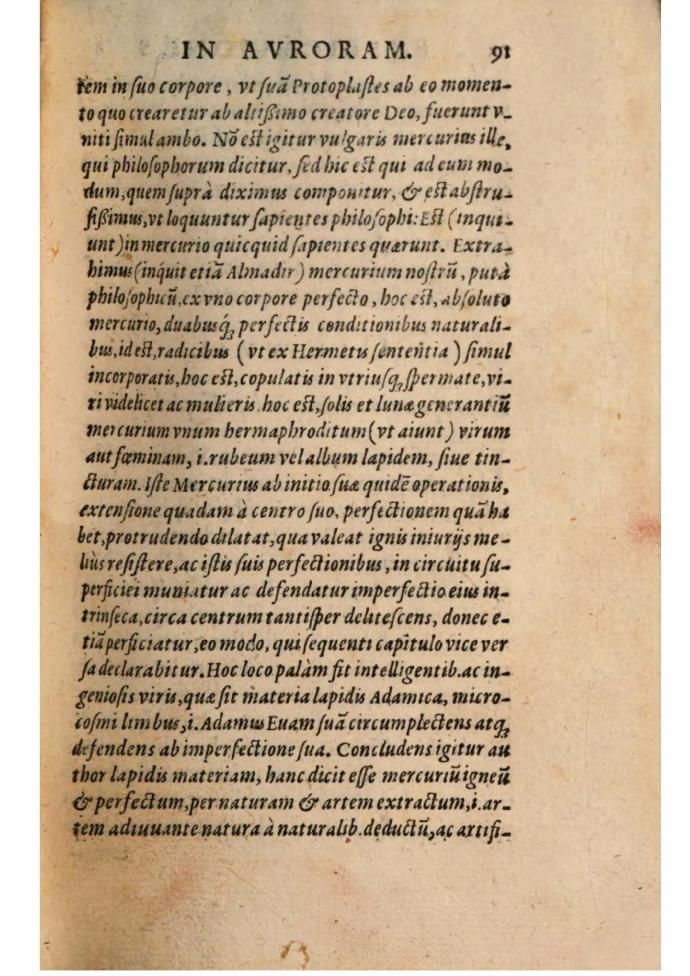 IN AVRORAM. 91
tem in ſuo corpore, vt ſuā Protoplaſtes ab eo momen-
to quo crearetur ab altißimo creatore Deo, fuerunt v-
niti ſimul ambo. Nō eſt igitur vulgaris mercurius ille,
qui philoſophorum dicitur, ſed hic eſt qui ad eum mo-
dum, quem ſuprà diximus componitur, & eſt abſtru-
ſißimus, vt loquuntur ſapientes philoſophi: Eſt (inqui-
unt) in mercurio quicquid ſapientes quærunt. Extra-
himus (inquit etiā Almadir) mercurium noſtrū, putà
philoſophicū, ex vno corpore perfecto, hoc eſt, abſoluto
mercurio, duabusq́ꝫ perfectis conditionibus naturali-
bus, id eſt, radicibus (vt ex Hermetis ſententia) ſimul
incorporatis, hoc eſt, copulatis in vtriuſqꝫ ſpermate, vi-
ri videlicet ac mulieris. hoc eſt, ſolis et lunæ generantiū
mercurium vnum hermaphroditum (vt aiunt) virum
aut fœminam, i. rubeum vel album lapidem, ſiue tin-
cturam. Iſte Mercurius ab initio ſuæ quidē operationis,
extenſione quadam à centro ſuo, perfectionem quā ha
bet, protrudendo dilatat, qua valeat ignis iniurijs me-
liùs reſiſtere, ac iſtis ſuis perfectionibus, in circuitu ſu-
perficiei muniatur ac defendatur imperfectio eius in-
trinſeca, circa centrum tantiſper deliteſcens, donec e-
tiā perficiatur, eo modo, qui ſequenti capitulo vice ver
ſa declarabitur. Hoc loco palàm fit intelligentib. ac in-
genioſis viris, quæ ſit materia lapidis Adamica, micro-
coſmi limbus, i. Adamus Euam ſuā circumplectens atqꝫ
defendens ab imperfectione ſua. Concludens igitur au
thor lapidis materiam, hanc dicit eſſe mercuriū igneū
& perfectum, per naturam & artem extractum, i. ar-
tem adiuuante natura à naturalib. deductū, ac artifi-